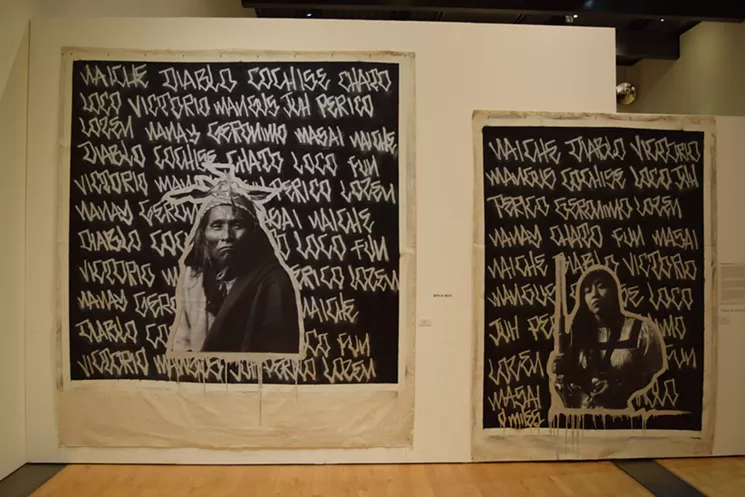 NAICHE DIABLO COCHISE CHATO
LOCO VICTORIO MANGUS JUH PERICO
LOZEN NANAY GERONIMO MASAI NAICHE
DIABLO COCHISE CHATO LOCO FUN
VICTORIO PERICO LOZEN
NANAY NAICHE
DIABLO LOCO FUN
VICTORIO LOZEN
NANAY NAICHE
DIABLO CO FUN
VICTORIO MANGUS JUH PERICO LOZEN
NAICHE DIABLO VICTORIO
MANGUS COCHISE LOCO JUH
PERICO GERONIMO LOZEN
NANAY CHATO FUN MASAI
NAICHE DIABLO VICTORIO
MANGUS LOCO
JUH PE NIMO
LOZEN FUN
MASAI